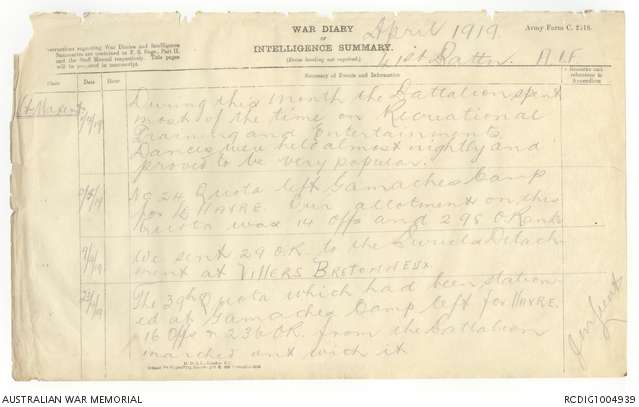 WAR DIARY
OF
INTELLIGENCE SUMMARY.
(Erase heading not required.)
April 1919.
41st Battn. AIF
Army Form C. 2118.
Instructions regarding War Diaries and Intelligence
Summaries are contained in F. S. Regs., Part II.
and the Staff Manual respectively. Title pages
will be prepared in manuscript.
Place
Date
Hour
Summary of Events and Information
Remarks and
references to
Appendices
During this month the Battalion spent
most of the time on Recreational
Training and Entertainments
Dances were held almost nightly and
proved to be very popular.
No 24 Quota left Gamaches Camp
for HAVRE. Our allotment on this
Quota was 14 Offs and 298 O Rank
We sent 29 OR to the Detach
ment at VILLERS BRETONNEUX
The 39th Quota which had been station
ed at Gamaches Camp left for HAVRE.
16 Offs & 236 OR. from the Battalion
marched out with it
AUSTRALIAN WAR MEMORIAL
RCDIG1004939